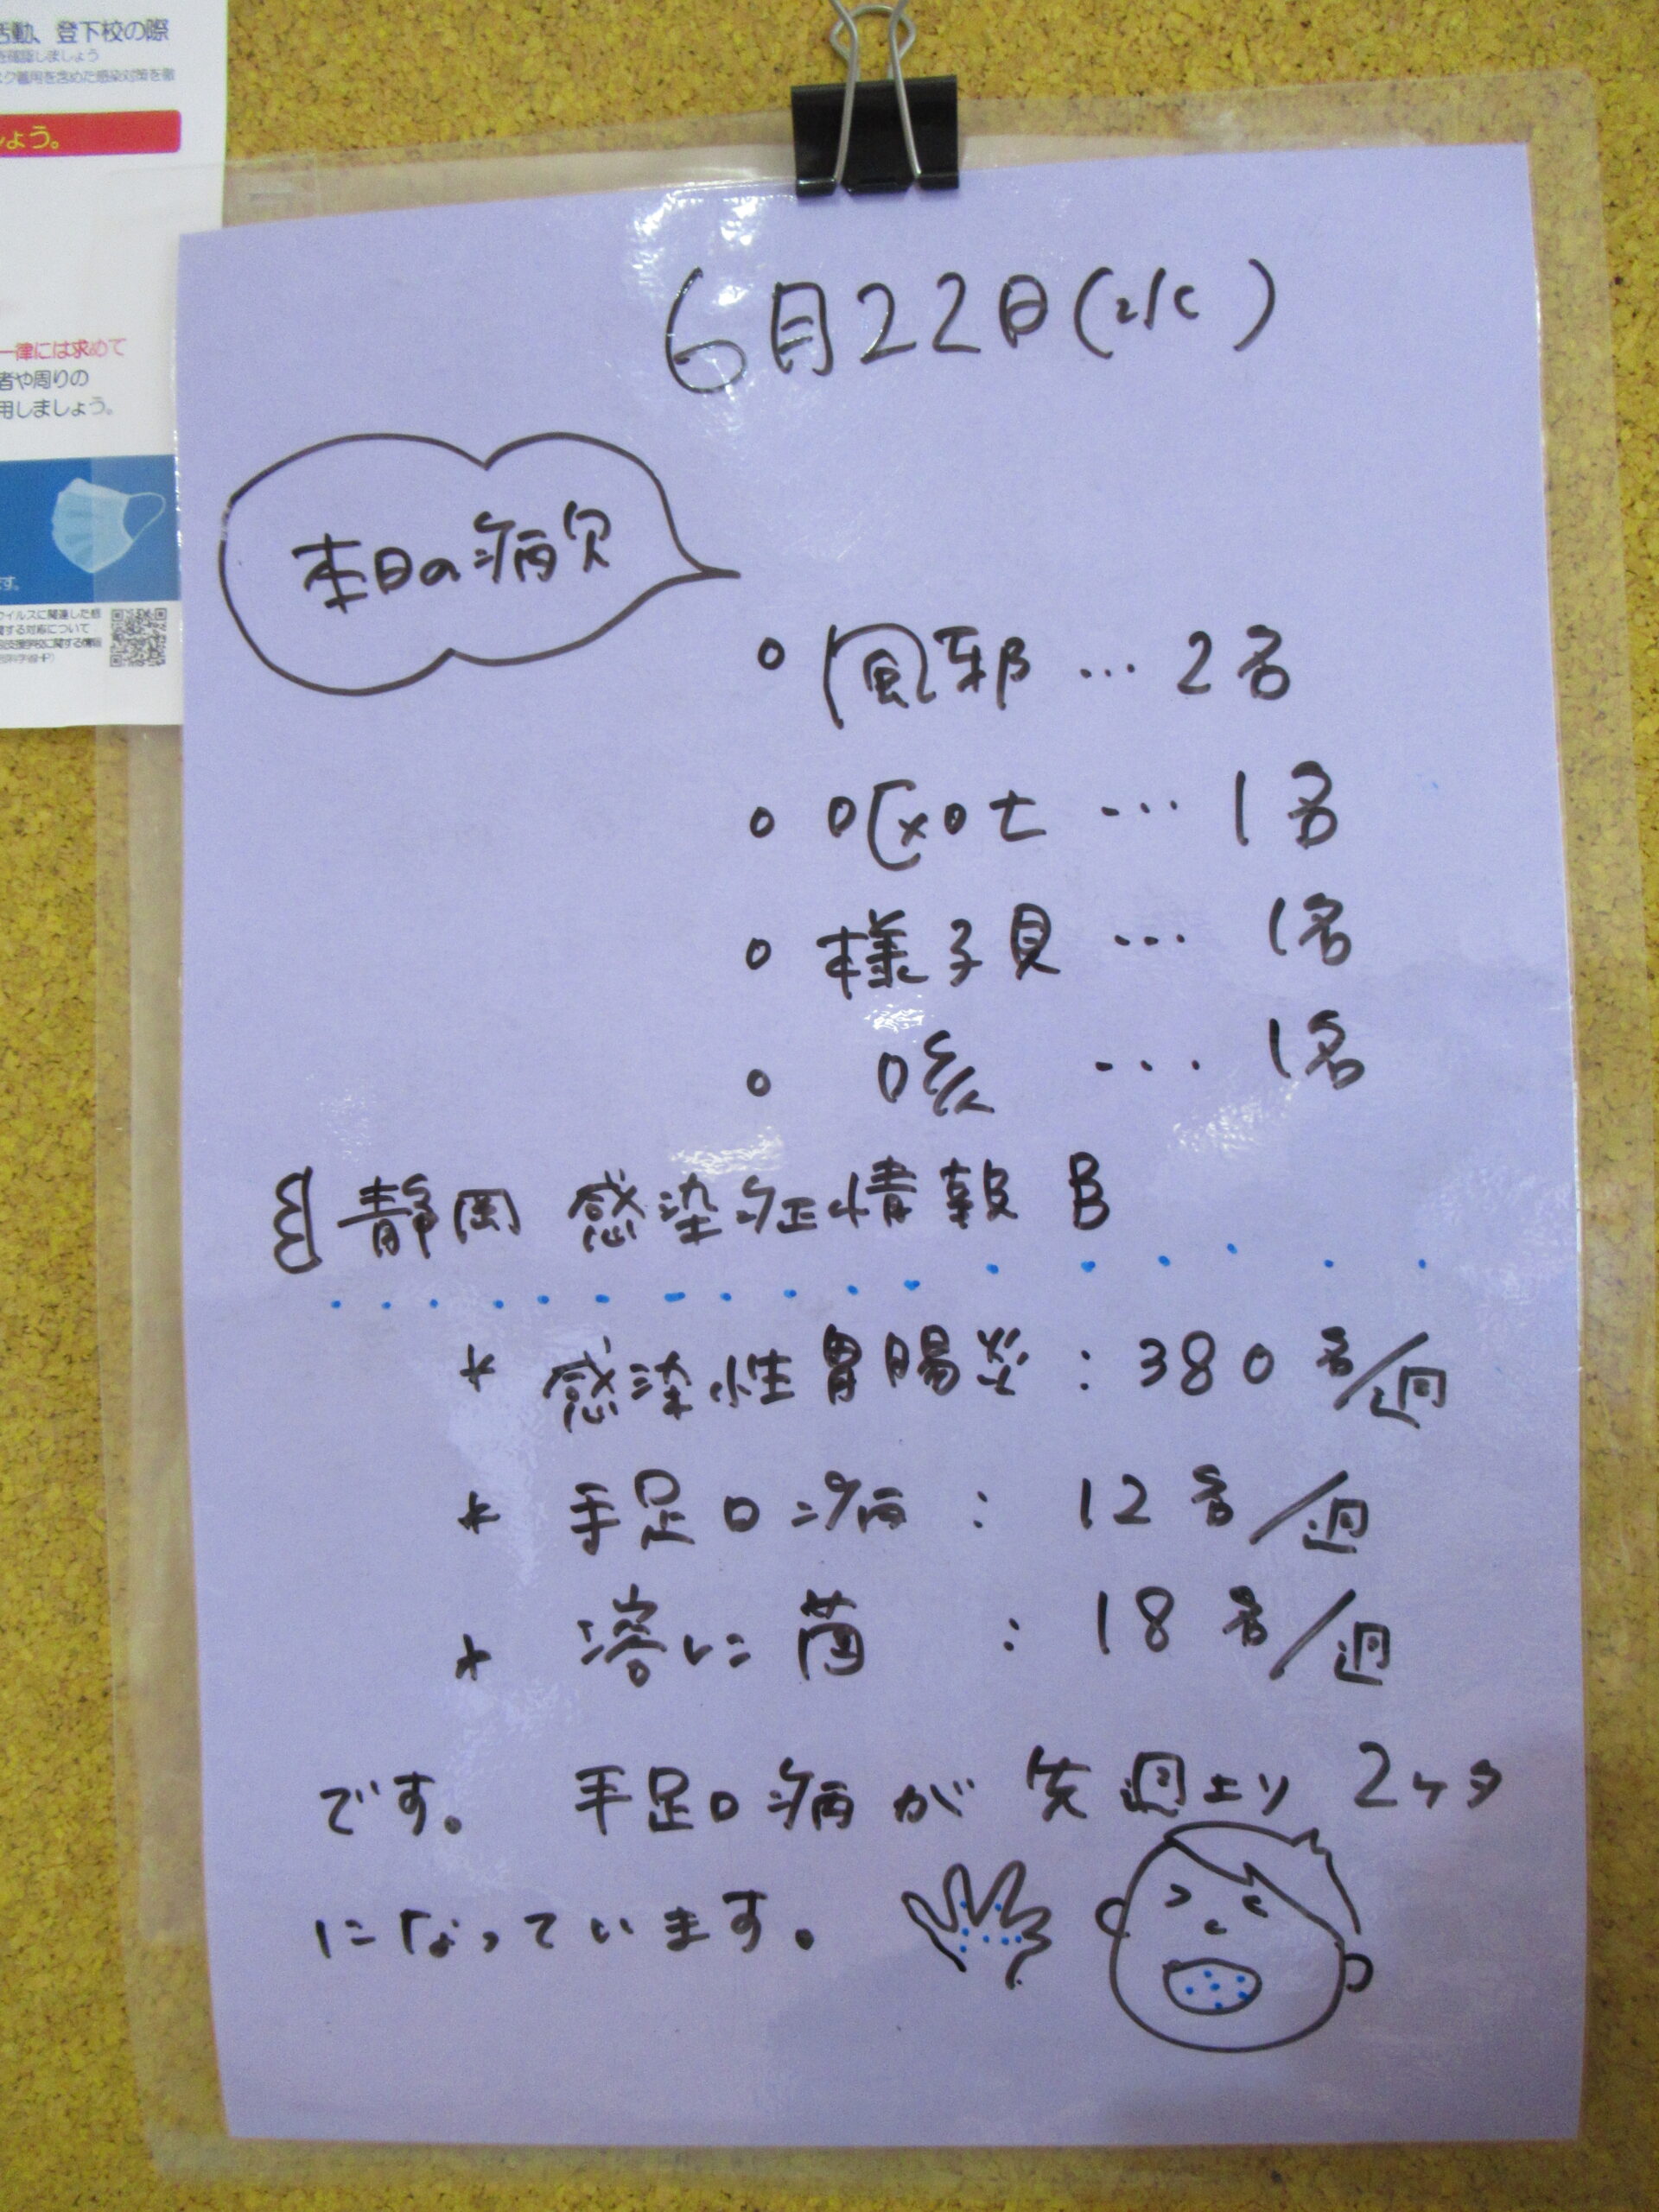 活動、登下校の際
を確認しましょう
スク着用を含めた感染対策を徹
しょう。
一律には求めて
者や周りの
用しましょう。
す。
ウイルスに関連した感
関する対応について
6月22日(水)
本日の病欠
○ 風邪 … 2名
○ 嘔吐 … 1名
○ 様子見 … 1名
○ 咳 … 1名
静岡 感染症情報
* 感染性胃腸炎 : 380名/週
* 手足口病 : 12名/週
* 溶レン菌 : 18名/週
です。 手足口病が先週より2ケタ
になっています。